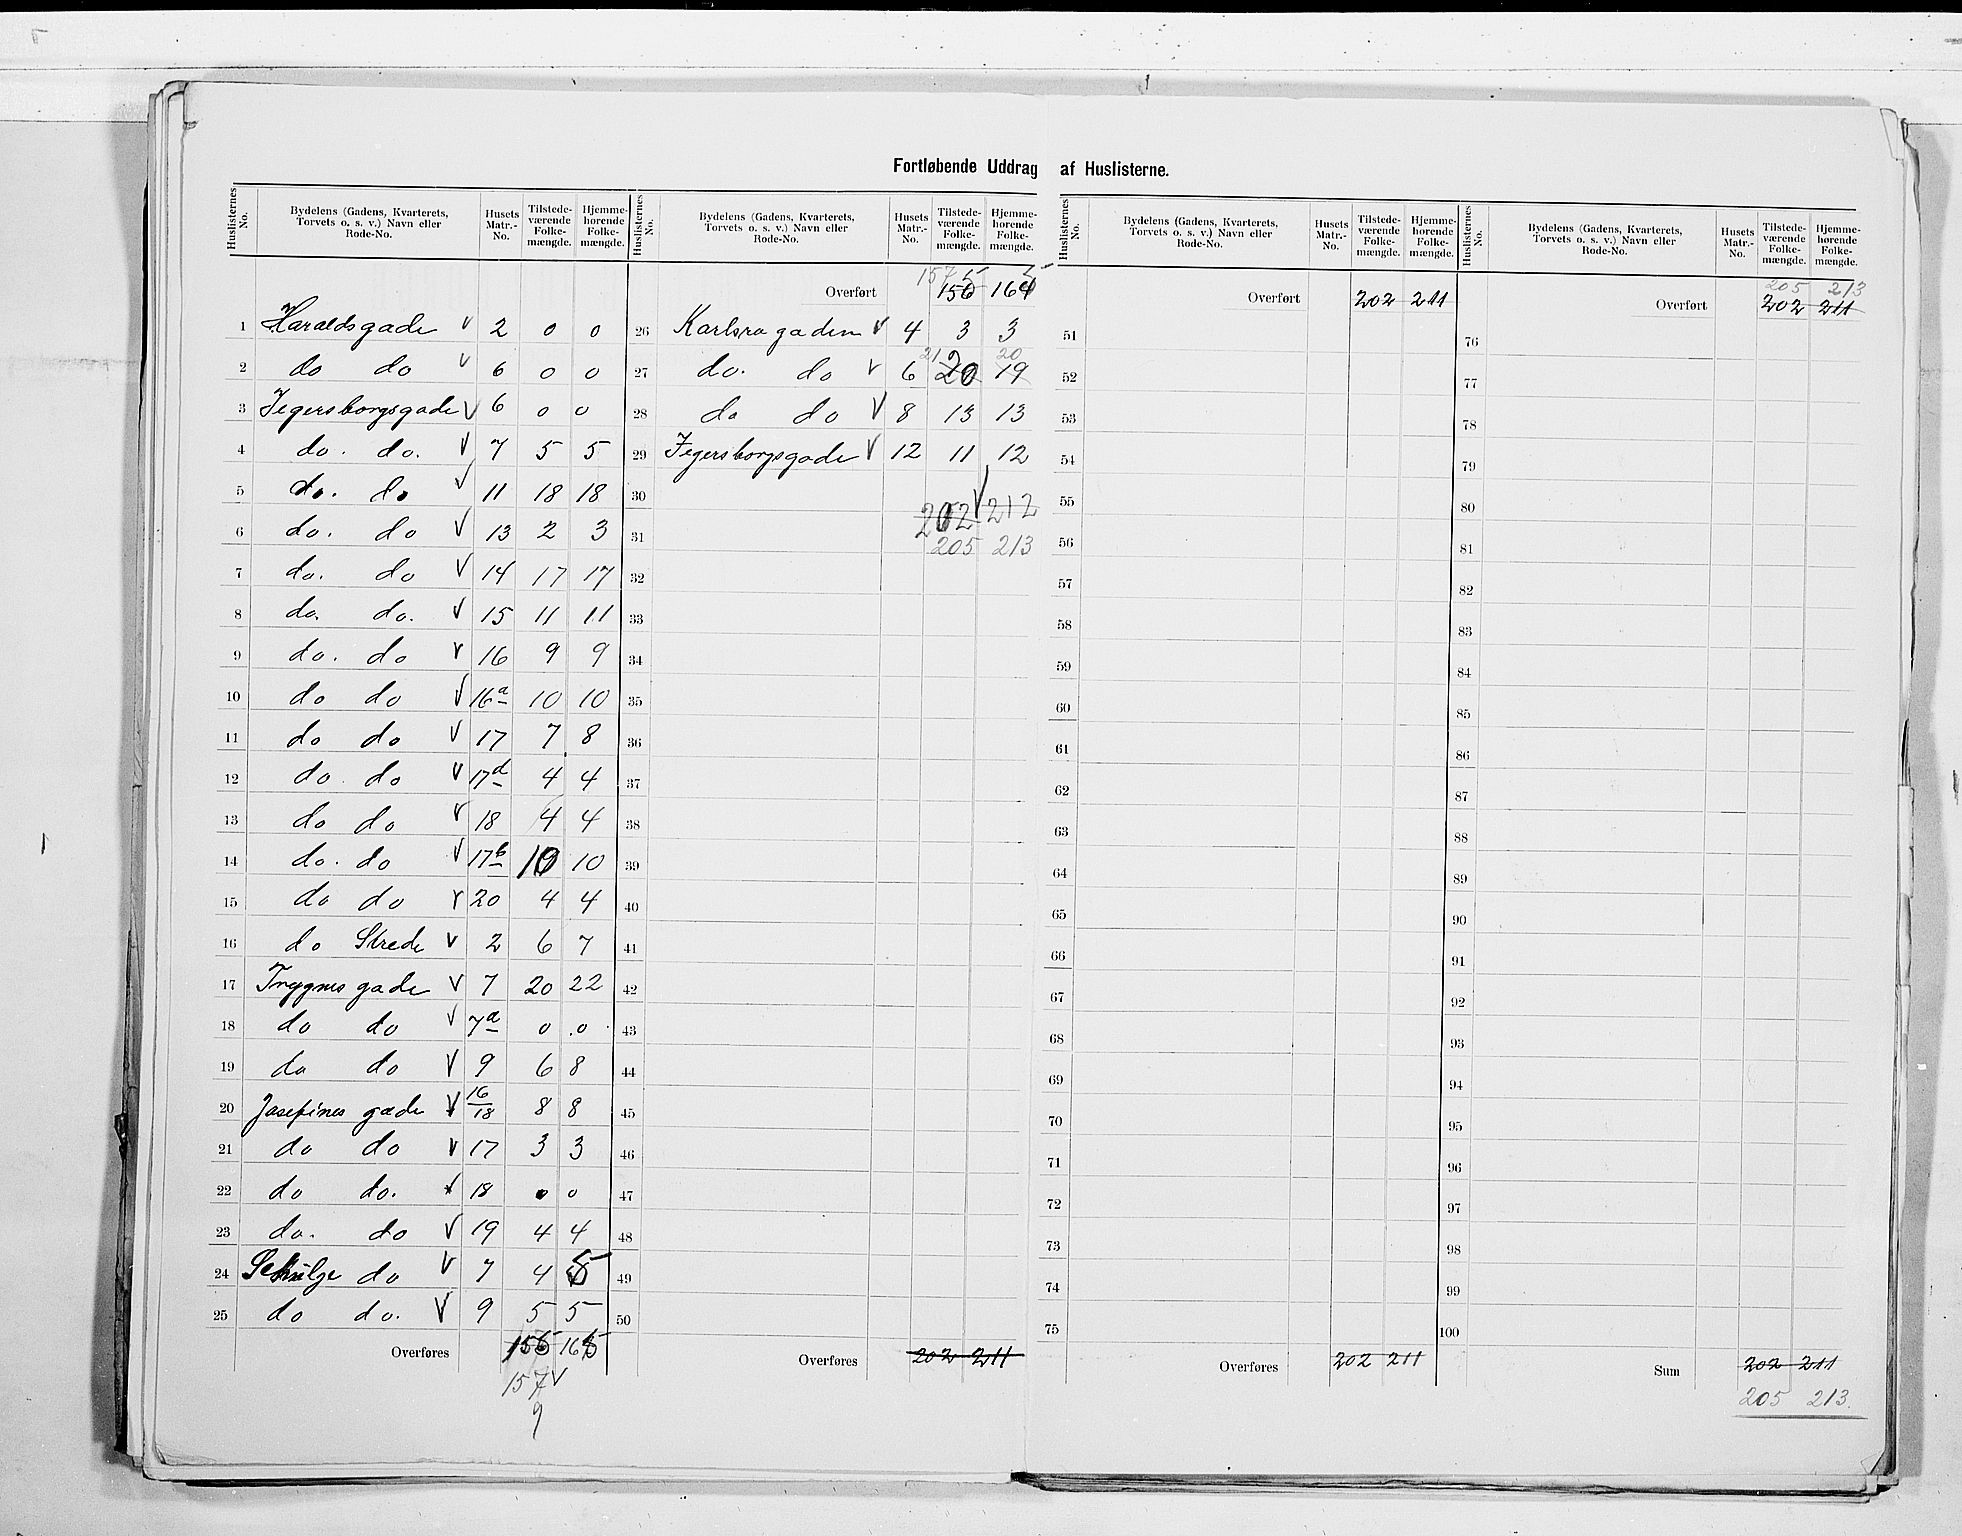 Fortløbende Uddrag af Huslisterne.
Huslisternes No. Bydelens (Gadens, Kvarterets, Torvets o. s. v.) Navn eller Rode-No. Husets Matr.-No. Tilstede-værende Folke-mængde. Hjemme-hørende Folke-mængde.
1 Haraldsgade V 2 0 0
2 do do V 6 0 0
3 Jegersborgsgade V 6 0 0
4 do. do. V 7 5 5
5 do. do V 11 18 18
6 do. do V 13 2 3
7 do. do V 14 17 17
8 do. do. V 15 11 11
9 do. do V 16 9 9
10 do do V 16a 10 10
11 do do V 17 7 8
12 do do V 17d 4 4
13 do do V 18 4 4
14 do. do V 17b 10 10
15 do do V 20 4 4
16 do Strede V 2 6 7
17 Trygnes gade V 7 20 22
18 do do V 7a 0 0
19 do do V 9 6 8
20 Josefines gade V 16/18 8 8
21 do do V 17 3 3
22 do do. V 18 0 0
23 do. do V 19 4 4
24 do V 7 4 5
25 do do. V 9 5 5
Overføres 165
157 V
9
Huslisternes No. Bydelens (Gadens, Kvarterets, Torvets o. s. v.) Navn eller Rode-No. Husets Matr.-No. Tilstede-værende Folke-mængde. Hjemme-hørende Folke-mængde.
157 5
Overført 156 164
26 Karlsrogaden V 4 3 3
21 20
27 do. do V 6 20 19
28 do do V 8 13 13
29 Jegersborgsgade V 12 11 12
30
202 V 212
31
205 213
32
33
34
35
36
37
38
39
40
41
42
43
44
45
46
47
48
49
50
Overføres 202 211
Huslisternes No. Bydelens (Gadens, Kvarterets, Torvets o. s. v.) Navn eller Rode-No. Husets Matr.-No. Tilstede-værende Folke-mængde. Hjemme-hørende Folke-mængde.
Overført 202 211
51
52
53
54
55
56
57
58
59
60
61
62
63
64
65
66
67
68
69
70
71
72
73
74
75
Overføres 202 211
Huslisternes No. Bydelens (Gadens, Kvarterets, Torvets o. s. v.) Navn eller Rode-No. Husets Matr.-No. Tilstede-værende Folke-mængde. Hjemme-hørende Folke-mængde.
205 213
Overført 202 211
76
77
78
79
80
81
82
83
84
85
86
87
88
89
90
91
92
93
94
95
96
97
98
99
100
Sum 202 211
205 213.